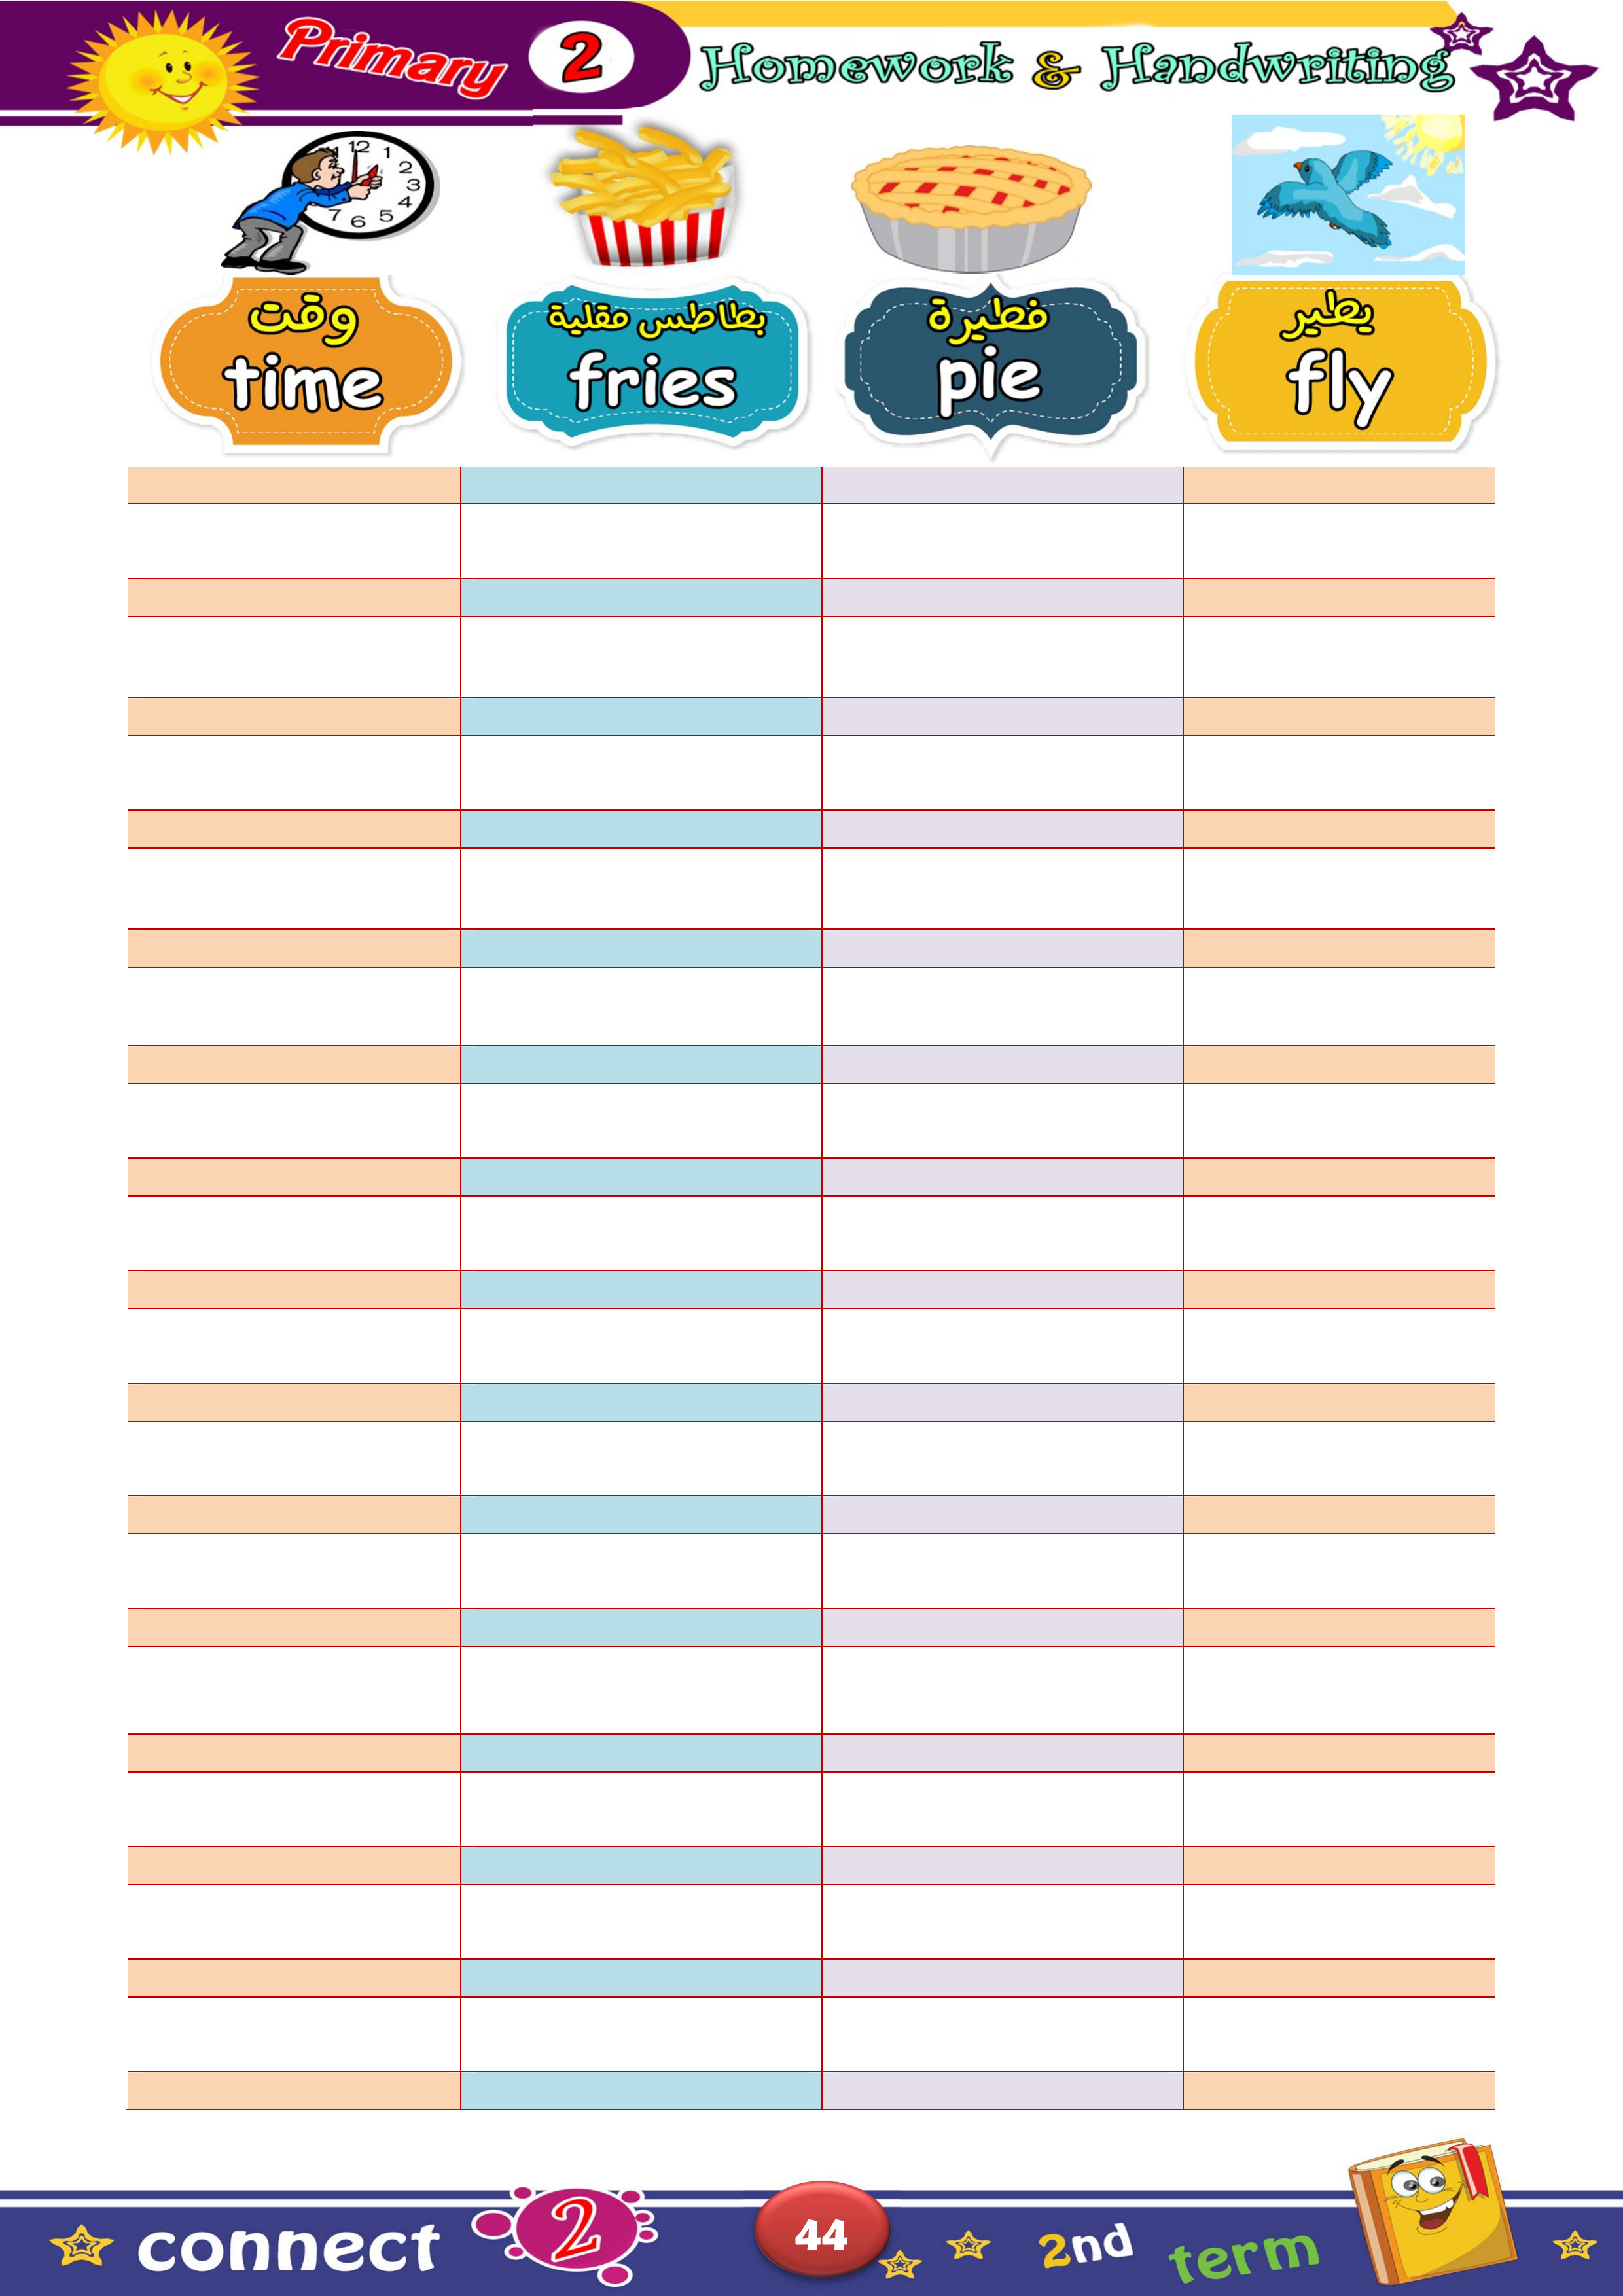 Primary 2 Homework & Handwriting
12 1 2 3 4 5 6 7
وقت
time
بطاطس مقلية
fries
فطيرة
pie
يطير
fly
connect 2 44 2nd term